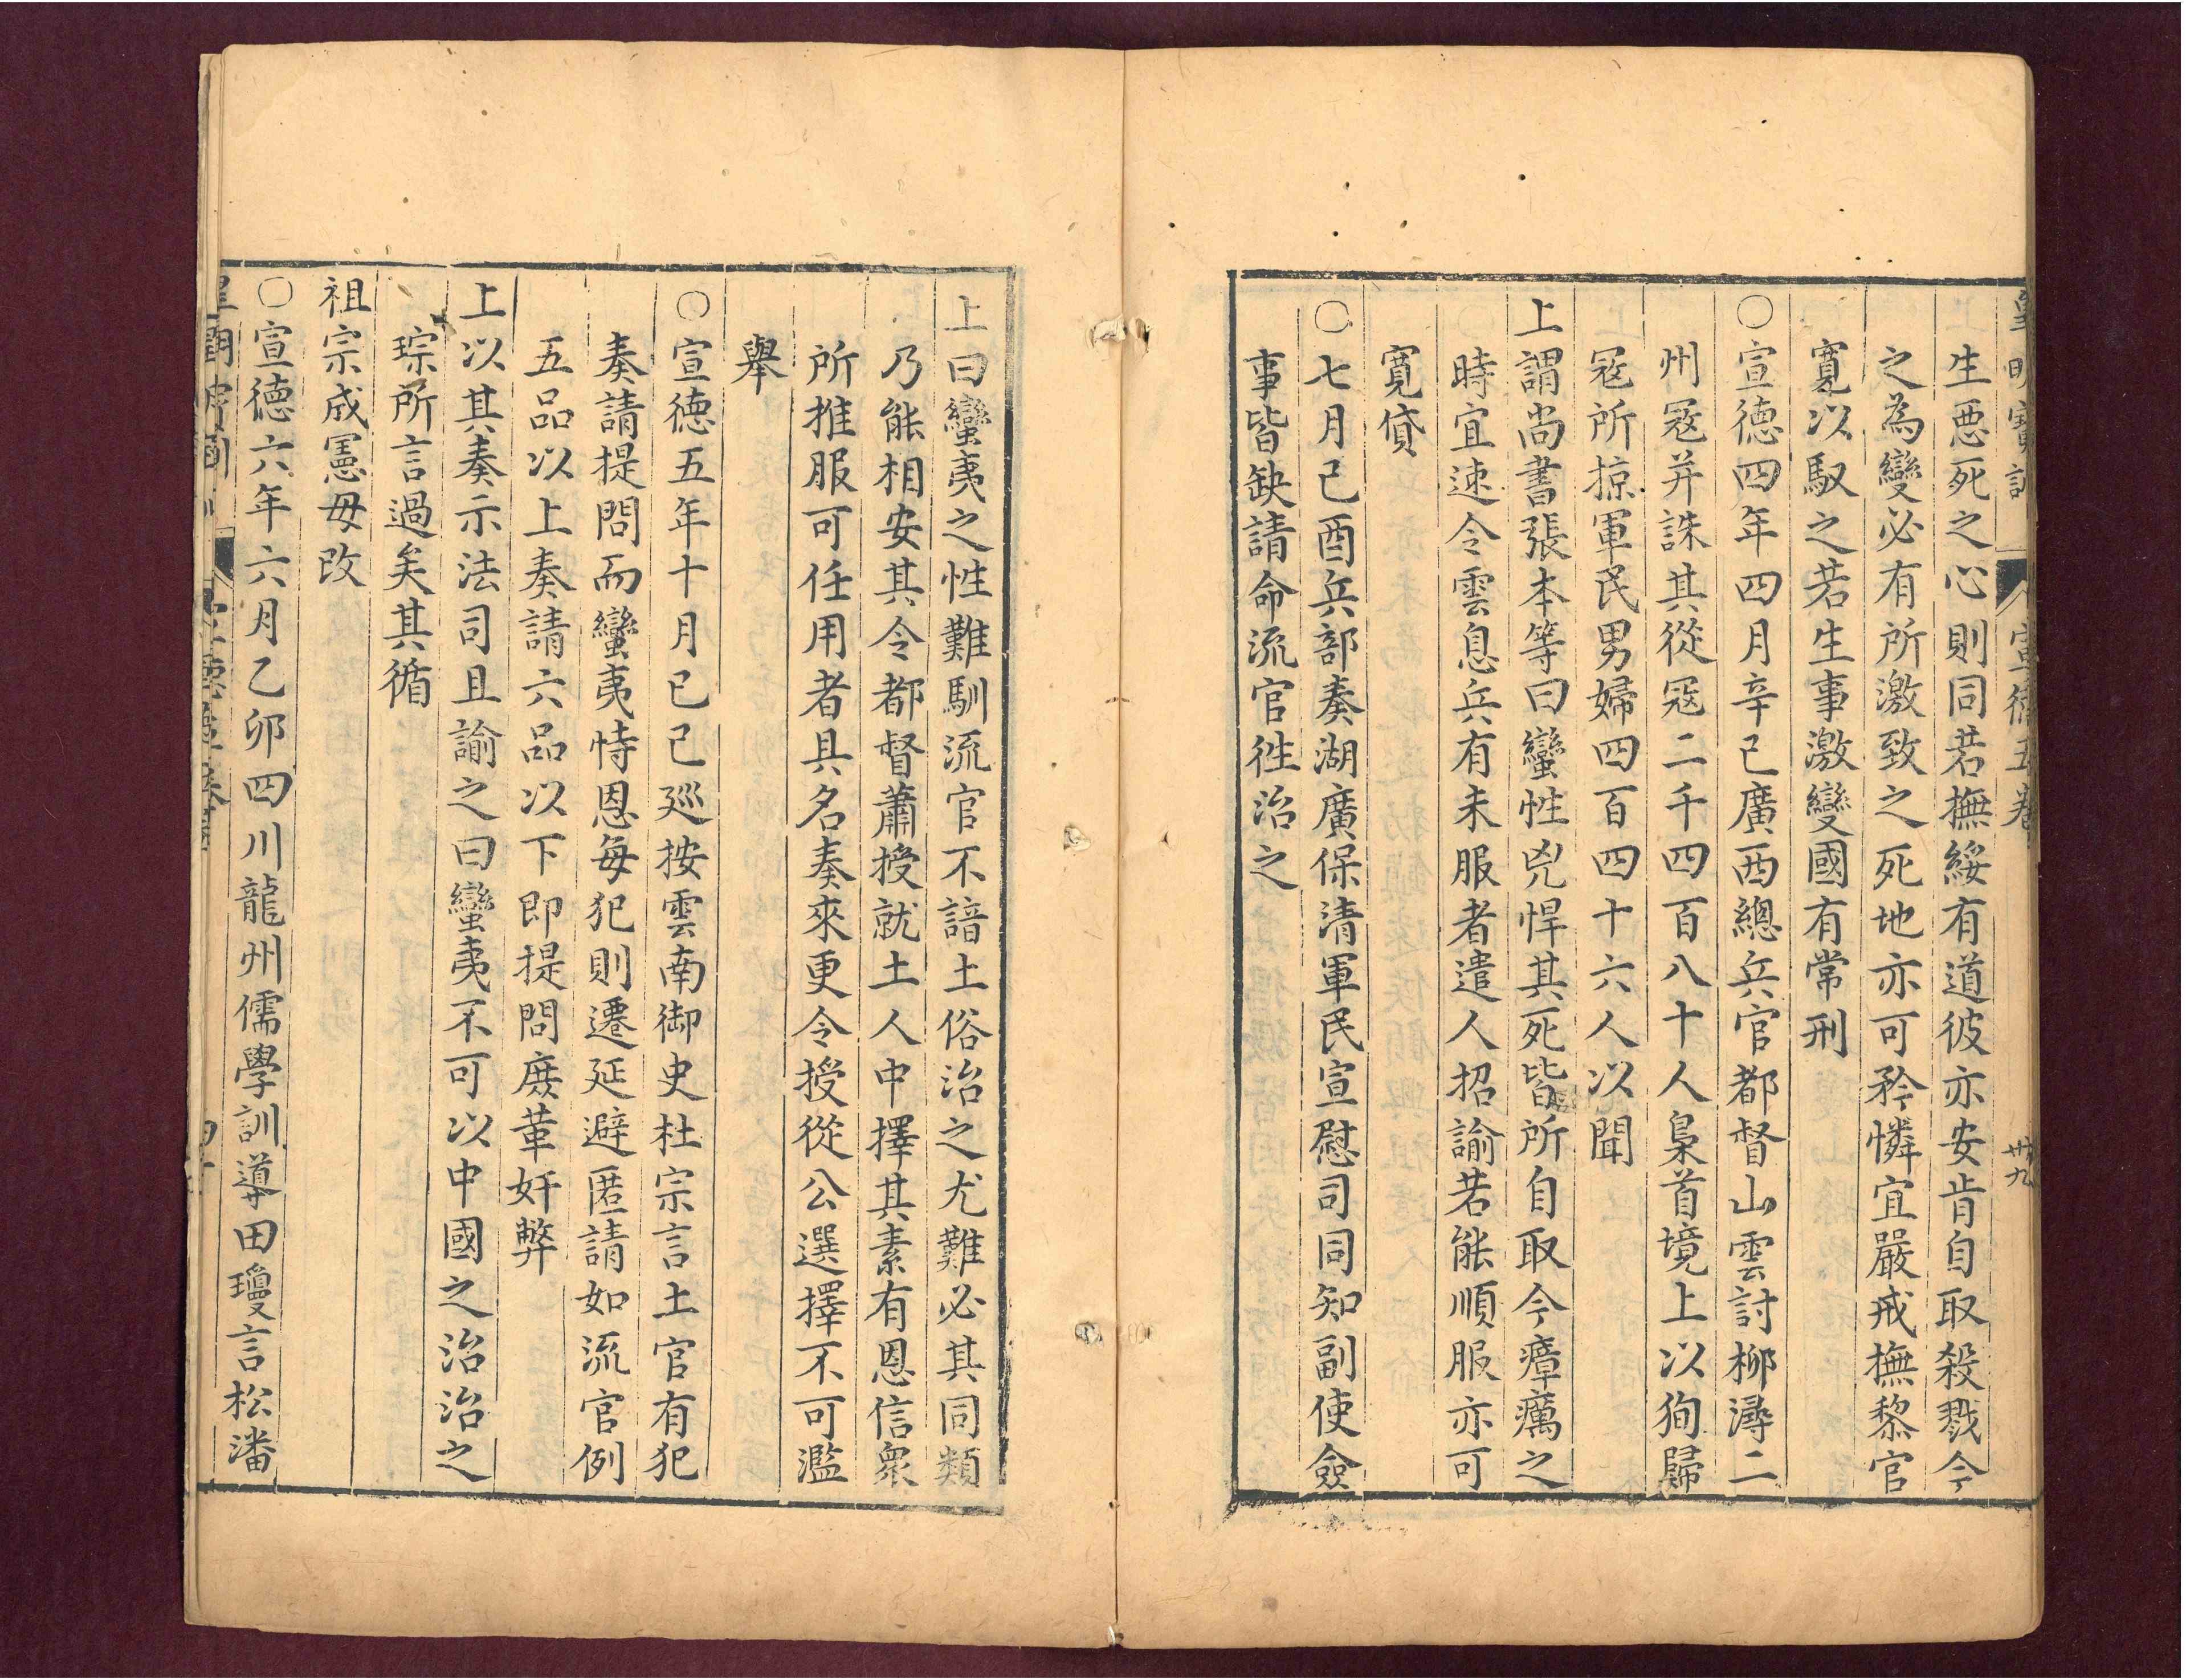 皇明寶訓 宣德五卷 卅九
生惡死之心則同若撫綏有道彼亦安肯自取殺戮今
之為變必有所激致之死地亦可矜憐宜嚴戒撫黎官
寬以馭之若生事激變國有常刑
〇宣德四年四月辛巳廣西總兵官都督山雲討柳潯二
州冦并誅其從冦二千四百八十人梟首境上以狥歸
冦所掠軍民男婦四百四十六人以聞
上謂尚書張本等曰蠻性兇悍其死皆所自取今瘴癘之
時宜速令雲息兵有未服者遣人招諭若能順服亦可
寬貸
〇七月己酉兵部奏湖廣保清軍民宣慰司同知副使僉
事皆缺請命流官徃治之
上曰蠻夷之性難馴流官不諳土俗治之尤難必其同類
乃能相安其令都督蕭授就土人中擇其素有恩信衆
所推服可任用者具名奏來更令授從公選擇不可濫
舉
〇宣德五年十月己巳廵按雲南御史杜宗言土官有犯
奏請提問而蠻夷恃恩每犯則遷延避匿請如流官例
五品以上奏請六品以下即提問庶革奸弊
上以其奏示法司且諭之曰蠻夷不可以中國之治治之
琮所言過矣其循
祖宗成憲毋改
〇宣德六年六月乙卯四川龍州儒學訓導田瓊言松潘